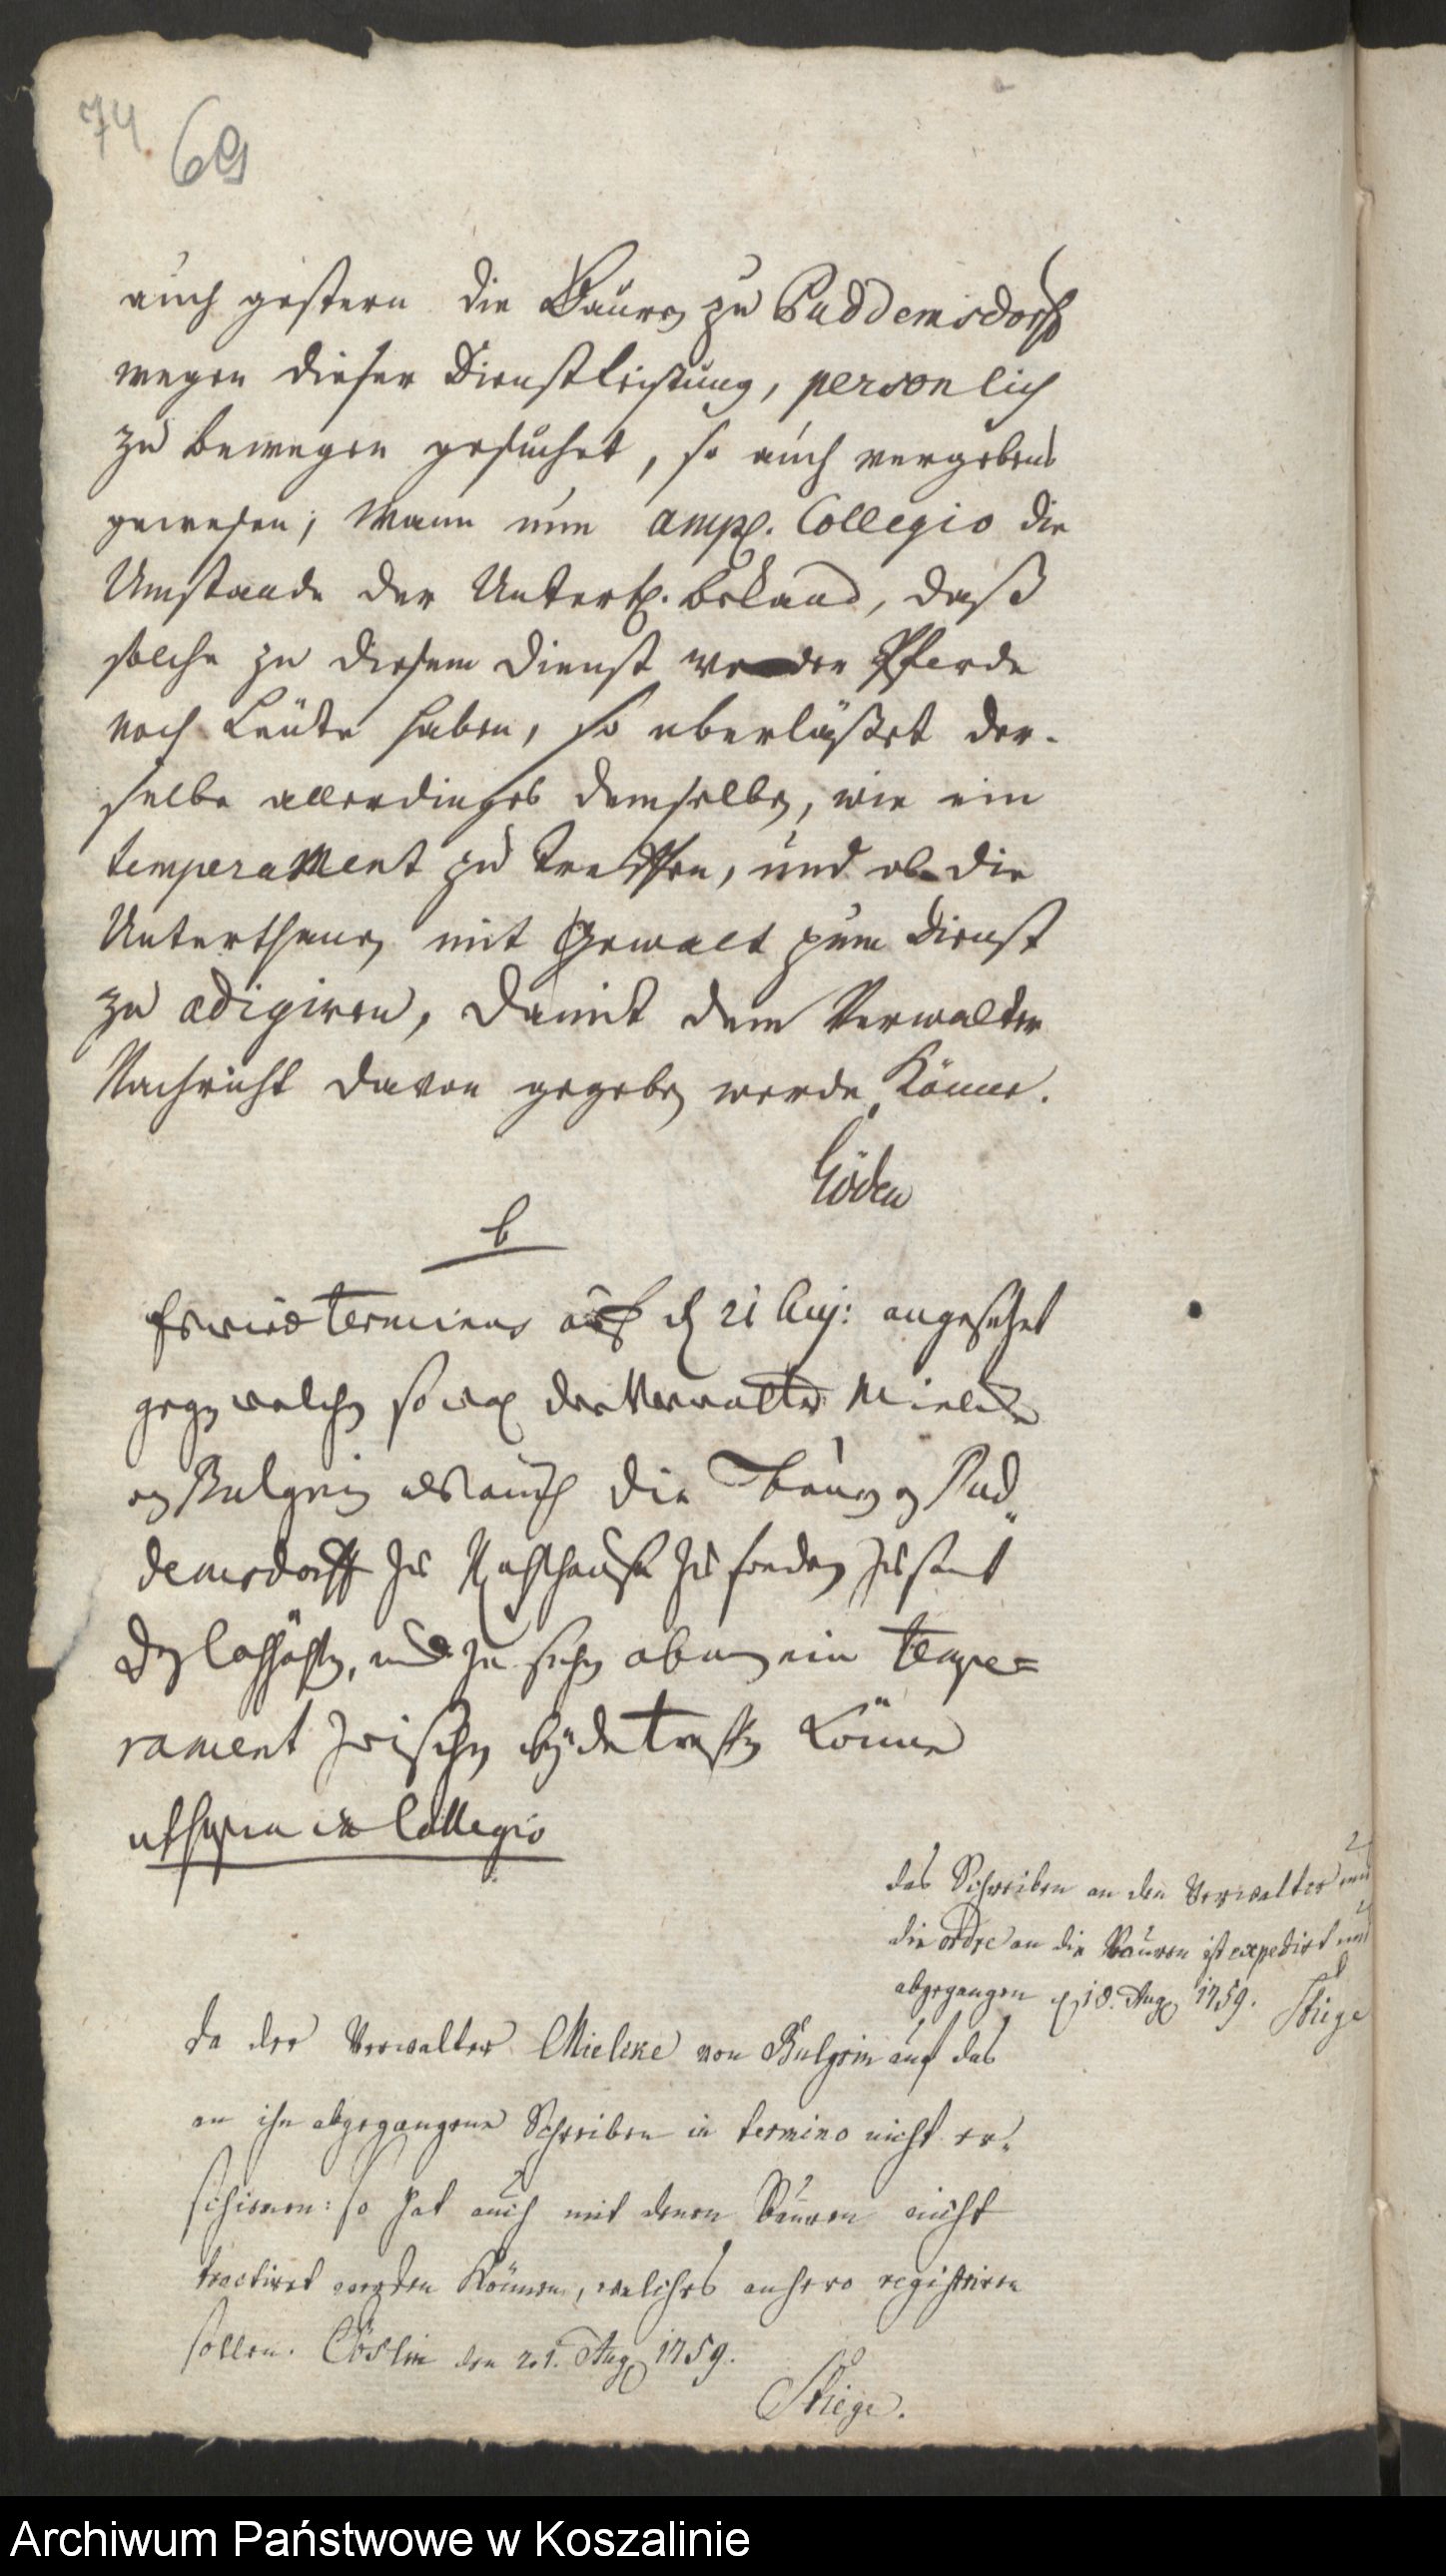 74
69
auch gestern die Bauren zu Puddemsdorff
wegen dieser Dienstleistung, personlich
zu bewegen gesuchet, so auch vergebens
gewesen; Wann nun ampl. Collegio die
Umstande der Unterth. bekand, daß
solche zu diesem Dienst weder Pferde
noch Leüte haben, so uberläßet der-
selbe allerdinges demselben, wie ein
temperament zu treffen, und ob die
Unterthanen mit Gewalt zum Dienst
zu adigiren, damit dem Verwalter
Nachricht davon gegeben werden könne.
Göden
Es wird Terminus auf d 21 Aug: angesetzet
gegen welchen so wol der Verwalter Mielcke
Bulgrin als auch die Bauren Pud
demsdorff zu Rathhause zu
und zu sehen ein tempe=
rament zwischen beyde treffen könne
in Collegio
das Schreiben an den Verwalter und
die ordre an die Bauren ist expedirt und
abgegangen d 18. Aug 1759. Stiege
Da der Verwalter Mielcke von Bulgrin auf das
an ihn abgegangene Schreiben in termino nicht er-
schienen: so hat auch mit denen Bauren nicht
tractiret werden können, welches anhero registriren
sollen. Cöslin den 21. Aug 1759.
Stiege.
Archiwum Państwowe w Koszalinie